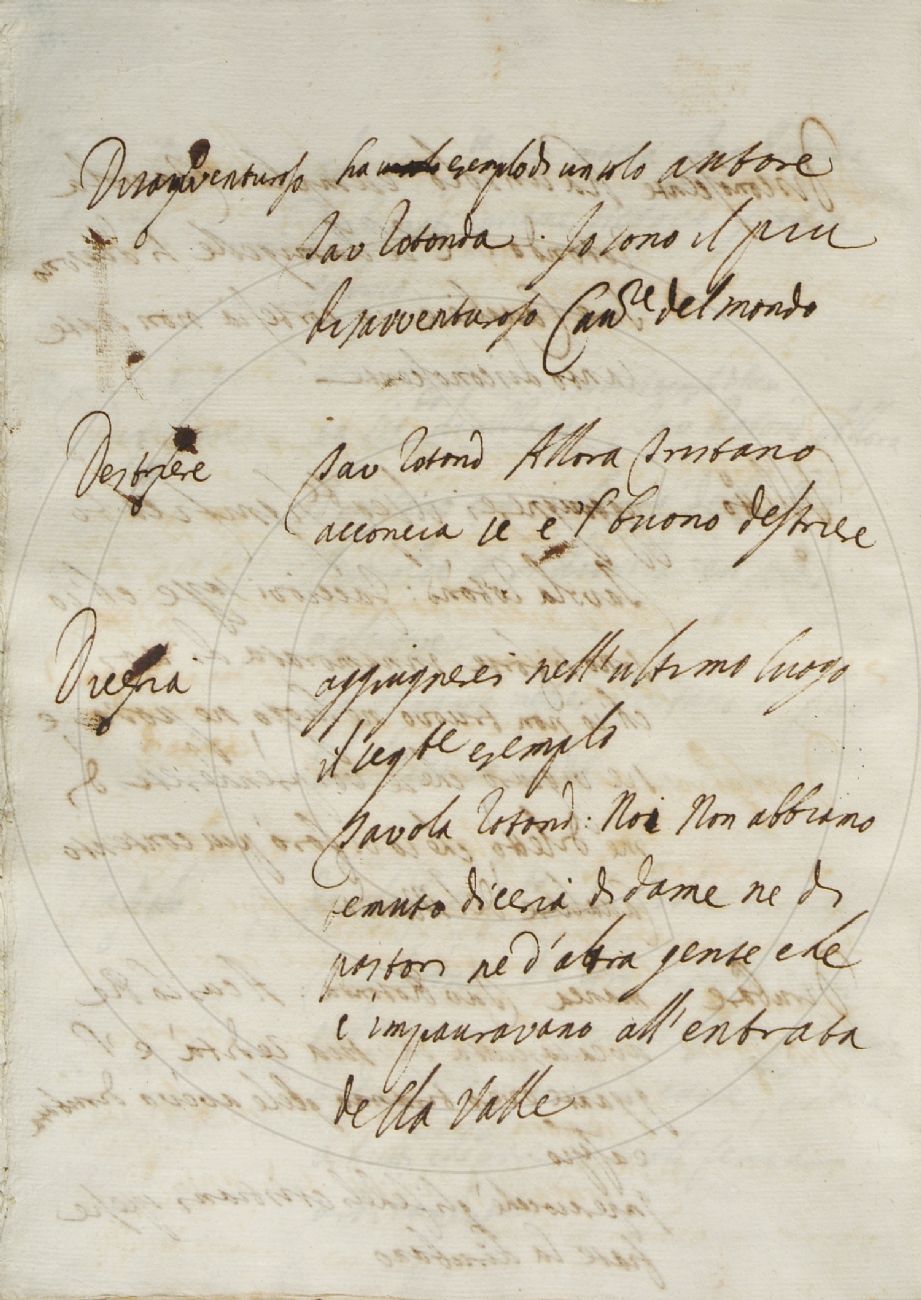 Disavventuroso ha esemplo di un solo autore
Tav Rotonda. Io sono il piu
disavventuroso Cav.re del mondo
Destriere Tav Rotond Allora Tristano
acconcia se e 'l buono destriere
Diceria aggiugnersi nell'ultimo luogo
il segte esemplo
Tavola Rotond: Noi Non abbiamo
temuto diceria di dame ne di
pastori ne d'altra gente che
c'impauravano all'entrata
della Valle